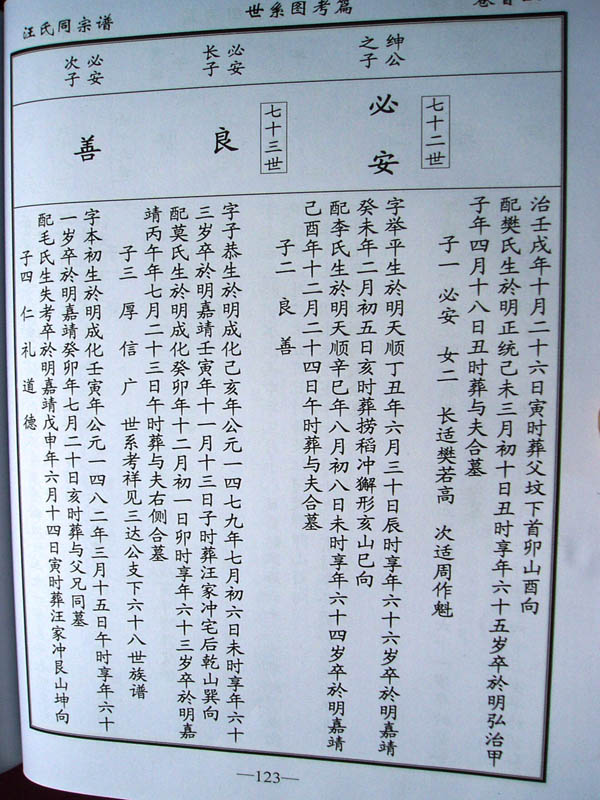 卷首
世系图考篇
汪氏同宗谱
治壬戌年十月二十六日寅时葬父坟下首卯山酉向
配樊氏生於明正统己未三月初十日丑时享年六十五岁卒於明弘治甲
子年四月十八日丑时葬与夫合墓
子一 必安 女二 长适樊若高 次适周作魁
七十二世
绅公
之子
必安
字举平生於明天顺丁丑年六月三十日辰时享年六十六岁卒於明嘉靖
癸未年二月初五日亥时葬捞稻冲獬形亥山巳向
配李氏生於明天顺辛巳年八月初八日未时享年六十四岁卒於明嘉靖
己酉年十二月二十四日午时葬与夫合墓
子二 良 善
七十三世
必安
长子
良
字子恭生於明成化己亥年公元一四七九年七月初六日未时享年六十
三岁卒於明嘉靖壬寅年十一月十三日子时葬汪家冲宅后乾山巽向
配莫氏生於明成化癸卯年十二月初一日卯时享年六十三岁卒於明嘉
靖丙午年七月二十三日午时葬与夫右侧合墓
子三 厚 信 广 世系考祥见三达公支下六十八世族谱
必安
次子
善
字本初生於明成化壬寅年公元一四八二年三月十五日午时享年六十
一岁卒於明嘉靖癸卯年七月二十日亥时葬与父兄同墓
配毛氏生失考卒於明嘉靖戊申年六月十四日寅时葬汪家冲艮山坤向
子四 仁 礼 道 德
—123—